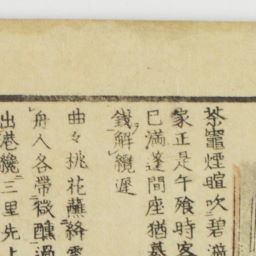 茶竈煙暄吹碧
家正是午飧時客
已滿蓬間座猶募
錢解纜遲
曲々桃花蘸
舟人各帶醺過
出港纔三里先上